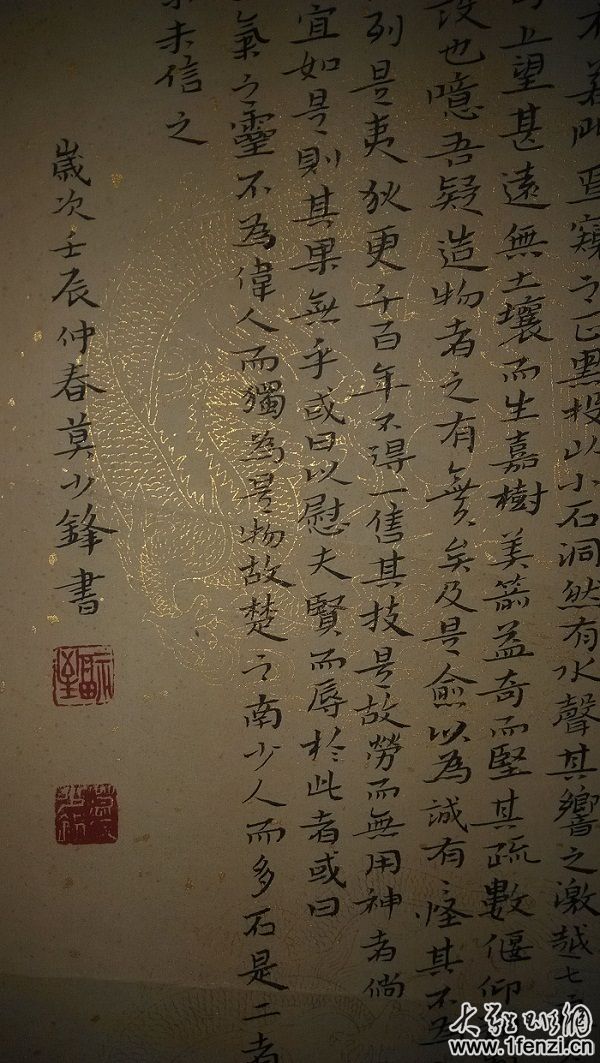 若門焉窺之正黑投以小石洞然有水聲其響之激越
上望甚遠無土壤而生嘉樹美箭益奇而堅其疏數偃仰
設也噫吾疑造物者之有無矣及是愈以為誠有怪其不
列是夷狄更千百年不得一售其技是故勞而無用神者倘
宜如是則其果無乎或曰以慰夫賢而辱於此者或曰
氣之靈不為偉人而獨為是物故楚之南少人而多石是二者
未信之
歲次壬辰仲春莫少鋒書
www.1fenzi.cn